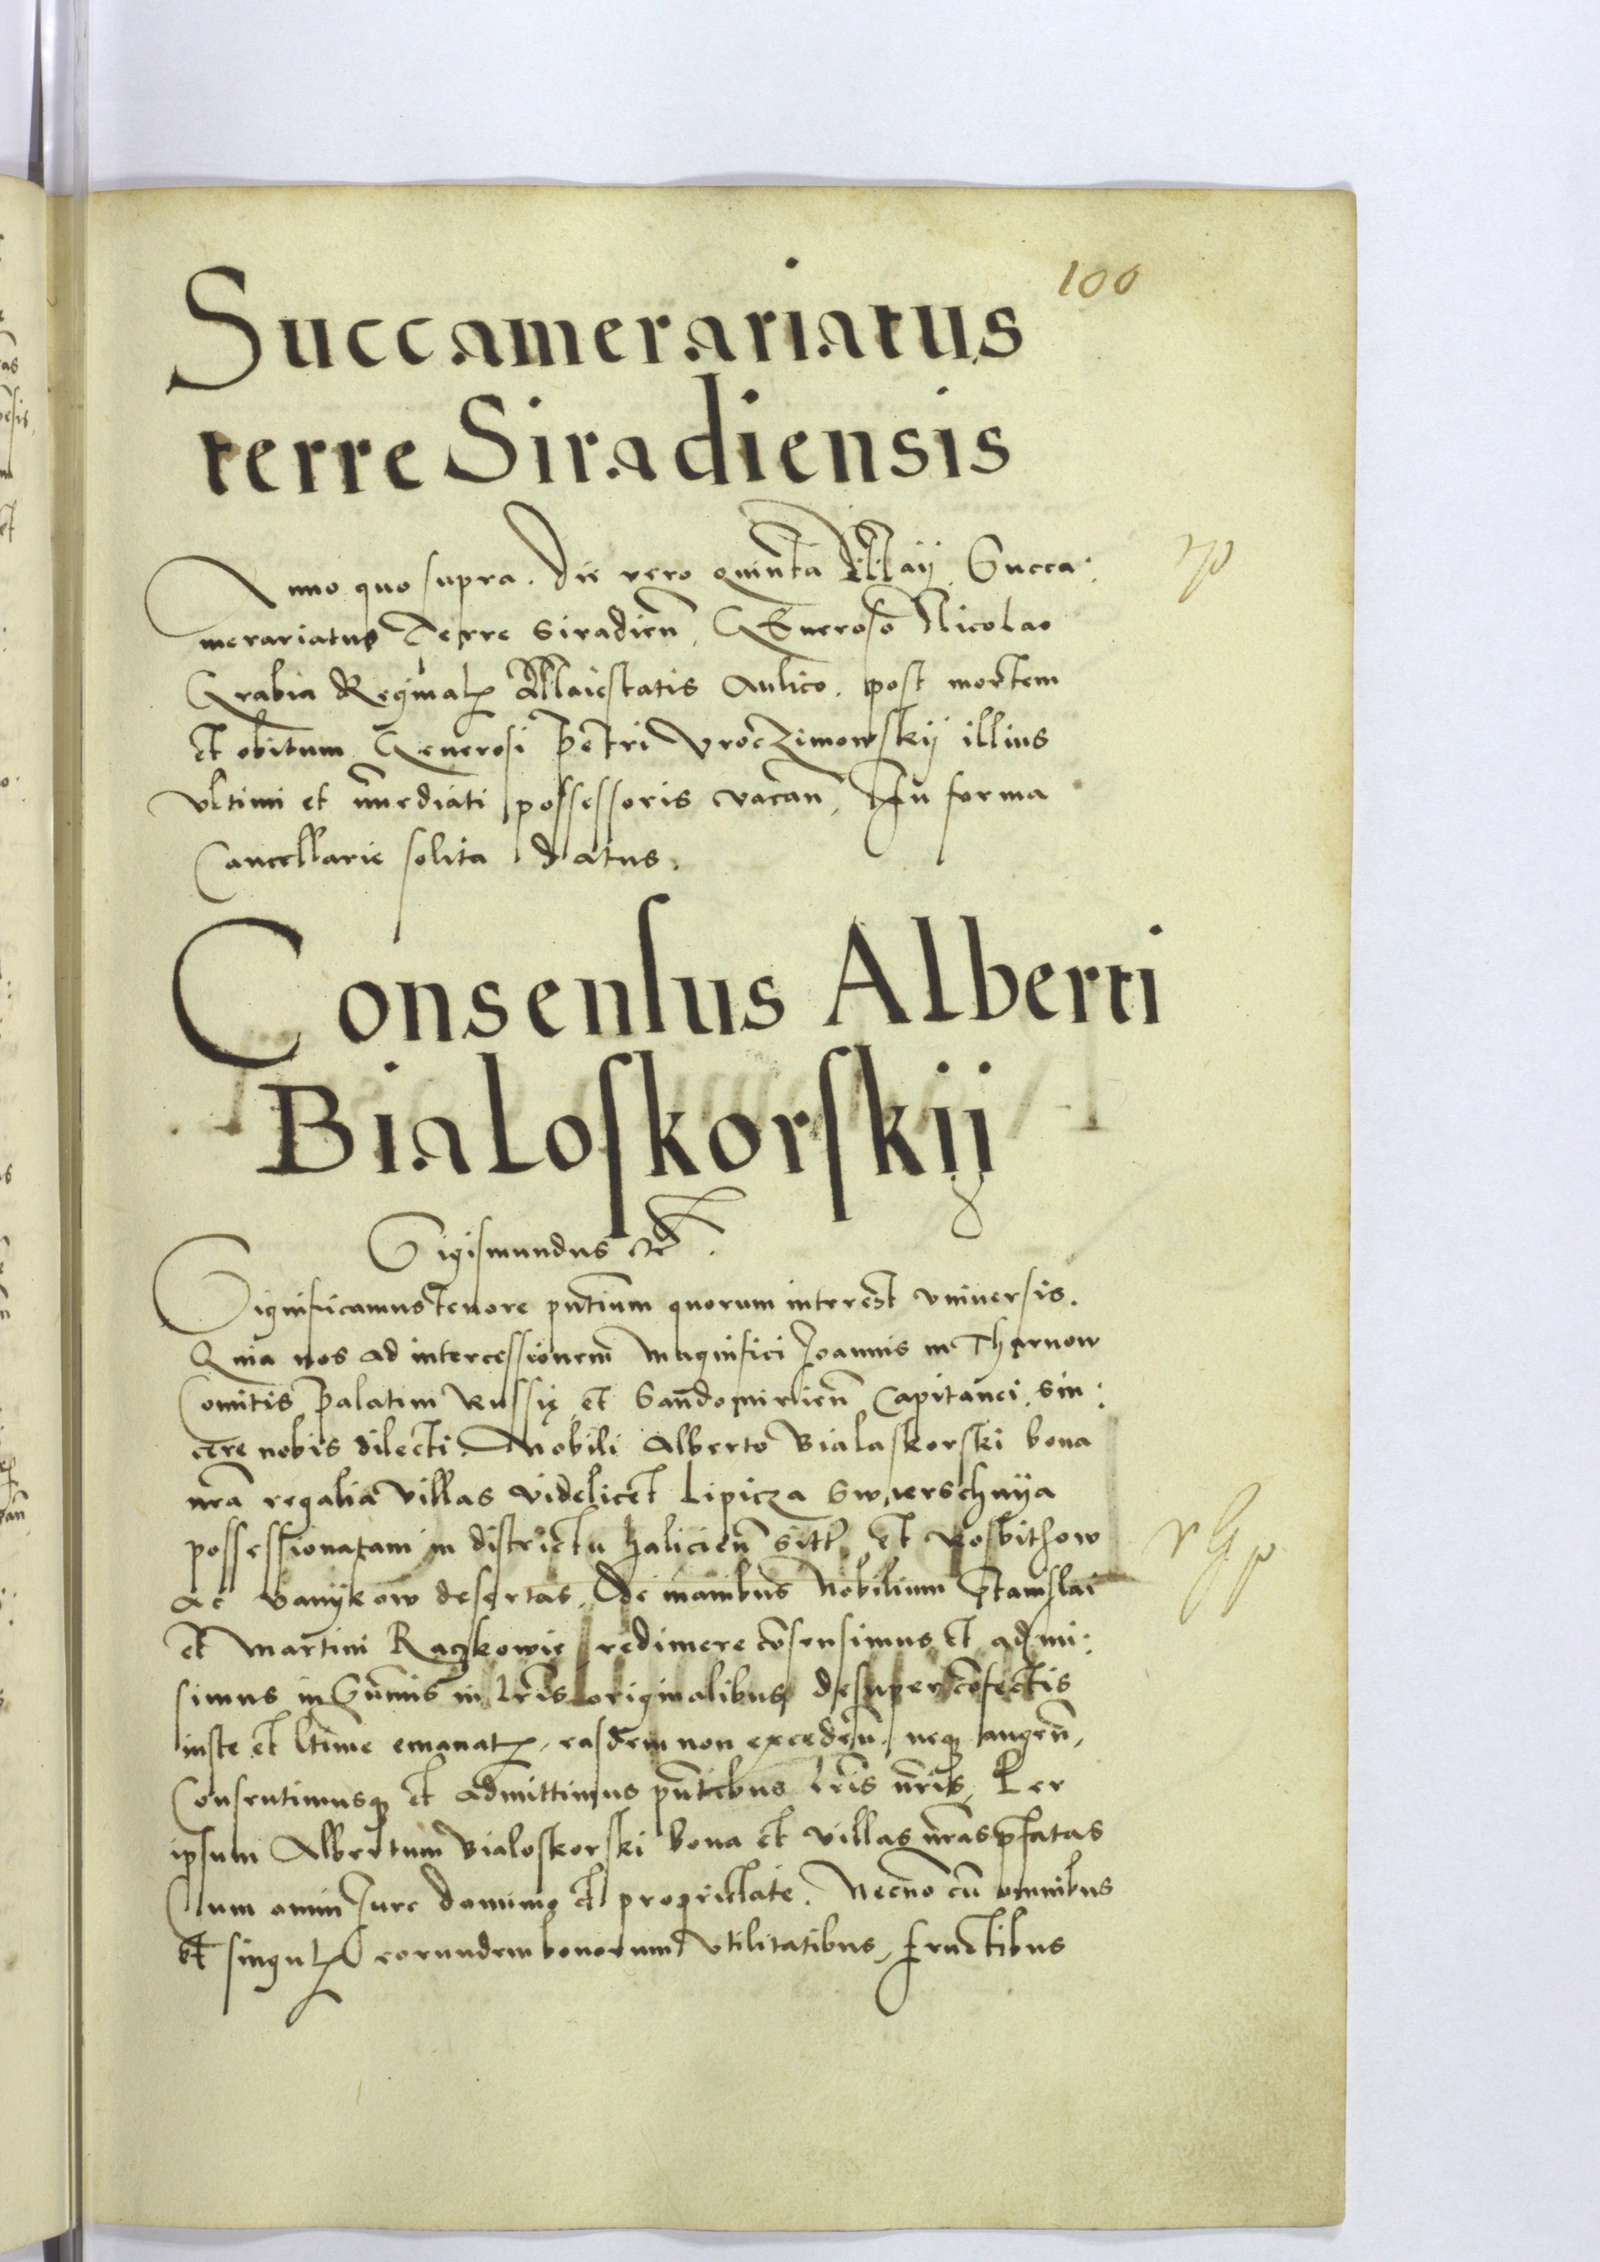 100
Succamerariatus
terre Siradiensis
Anno quo supra. die vero quinta Maij Succa:
merariatus Terre Siradien̄, Generoso Nicolao
Grabia Reginalꝝ Maiestatis Aulico. post mortem
et obitum Generosi Petri Vroczimowskij illius
vltimi et īmediati possessoris vacan̄, In forma
Cancellarie solita datus.
Consensus Alberti
Bialoskorskij
Sigismundus
Significamus tenore pn̄tium quorum interest vniuersis.
Quia nos ad intercessionem Magnifici Joannis in Tharnow
Comitis Palatini Russię et Sandomirien̄ Capitanei. sin:
cere nobis dilecti. Nobili Alberto Bialaskorski bona
nr̄a regalia villas videlicet Lipicza Swierschnya
possessionatam in districtu halicien̄ et Rosbithow
ac Banijkow desertas. De manibus Nobilium Stanislai
et Martini Raczkowie redimere cōsensimus et admi:
simus in Sum̄is in lr̄is originalibus desuper cōfectis
iuste et ltīme emanatꝝ, easdem non exceden̄. neqꝫ augen̄,
Consentimusqꝫ et admittimus pn̄tibus lr̄is nr̄is, Per
ipsum Albertum Bialoskorski bona et villas nr̄as p̄fatas
Cum omni Jure dominio et proprietate. Necno cū omnibus
et singulꝝ eorundem bonorum vtilitatibus, fructibus